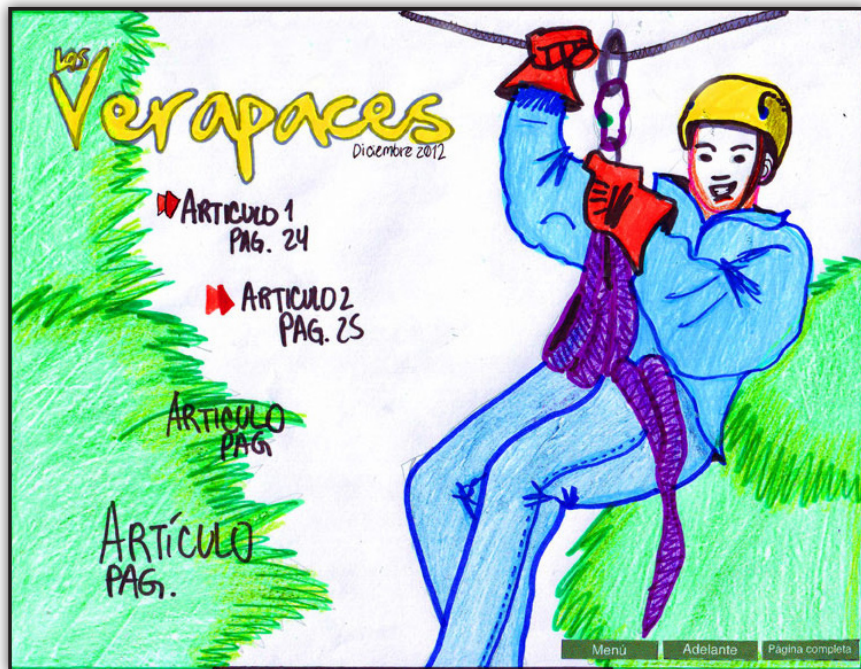 Las
Verapaces
Diciembre 2012
ARTICULO 1
PAG. 24
ARTICULO 2
PAG. 25
ARTICULO
PAG
ARTÍCULO
PAG.
Menú Adelante Página completa